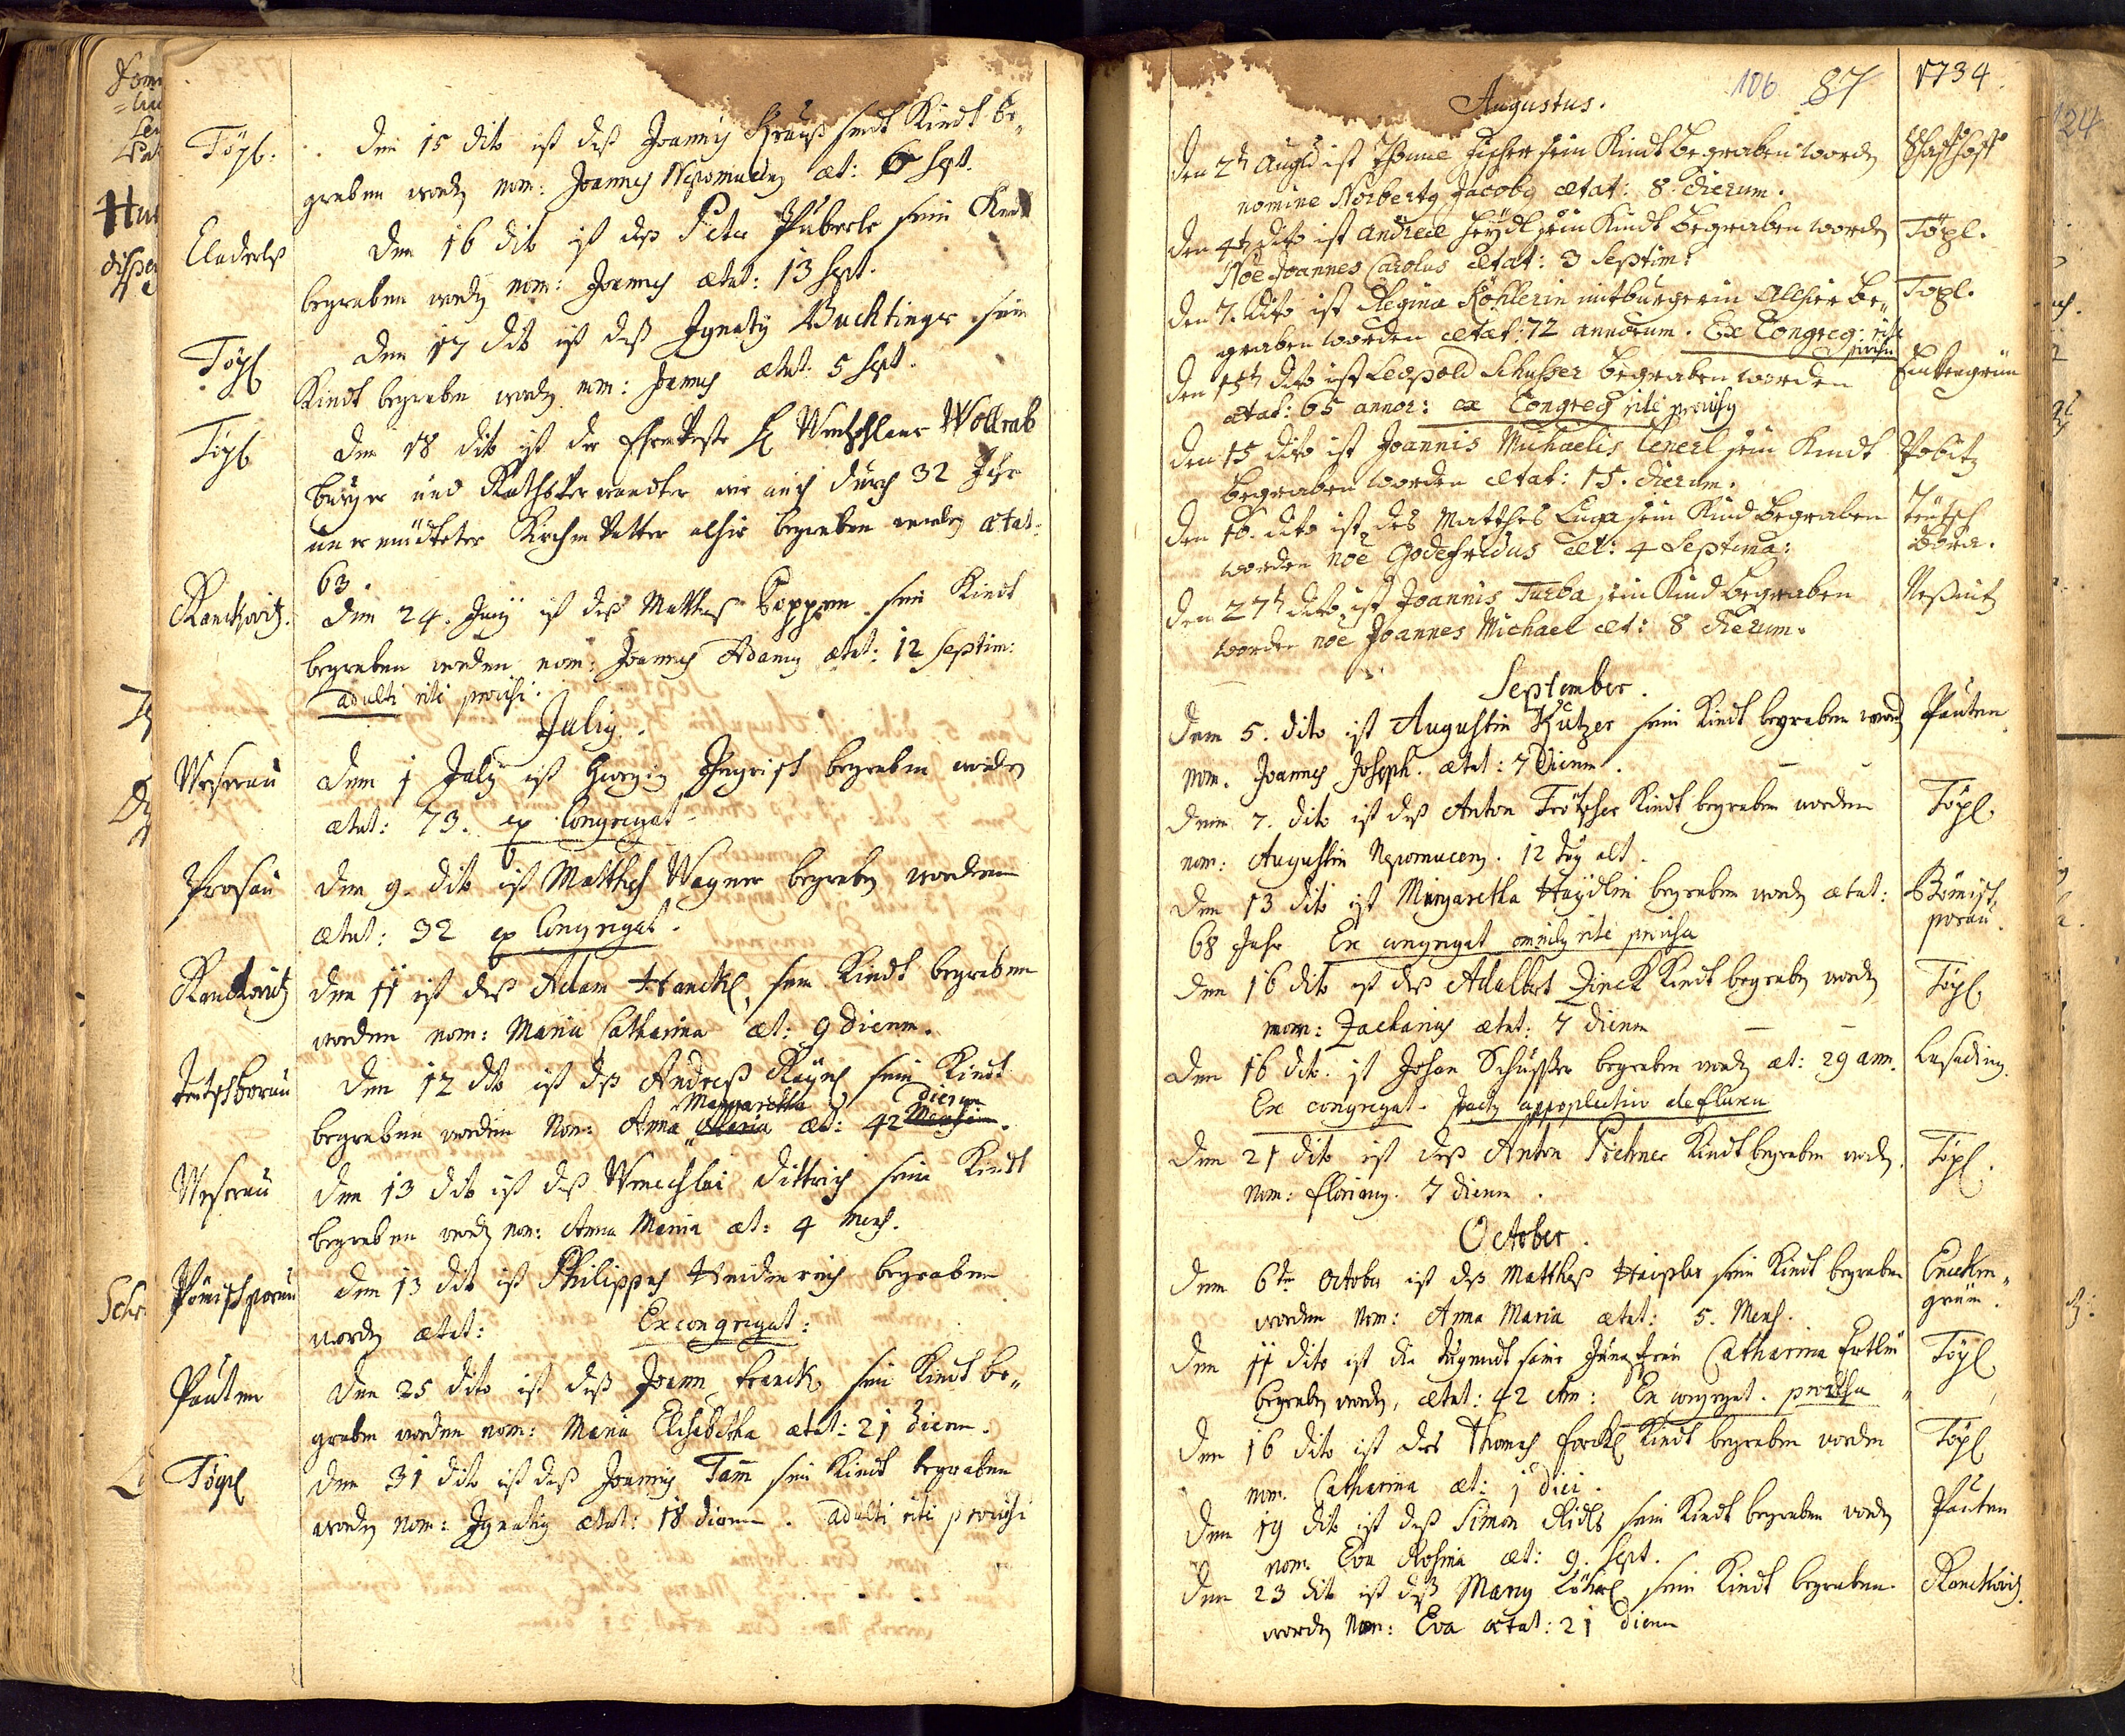 Töpl:
Den 15 dito ist deß Joannis Krauß sein Kindt be„
graben worden nom: Joannes Nepomucenus æt: 6 Sept.
Eladerleß
Den 16 dito ist deß Peter Huberle sein Kind
begraben worden nom: Joannes ætat: 13 Sept.
Töpl
Den 17 dito ist deß Ignatz Buchtinger sein
Kindt begraben worden nom: Joannes ætat: 5 Sept.
Töpl
Den 18 dito ist der Ehrnveste H Wentzlaus Wollrab
burger und Rathsverwandter wie auch durch 32 Jahr
unermüdteter Kirchen Vatter alhir begraben worden ætat.
63.
Ranckowitz.
Den 24. Juny ist deß Matthes Poppen sein Kindt
begraben worden nom: Joannes Adamus ætat: 12 septim:
adulti rite provisi.
Julius.
Weserau
Den 1 July ist Georgius Ingrisch begraben worden
ætat: 73. ex Congregat
Prosau
Den 9. dito ist Matthes Wagner begraben worden
ætat: 32 ex Congregat.
Ranckowitz
Den 11 ist deß Adam Hanckl sein Kindt begraben
worden nom: Maria Catharina æt: 9 dierum.
Teutschborau
Den 12 dito ist deß Andreß sein Kindt
Margaretha dierum
begraben worden Nom: Anna Maria æt: 42 Mensium.
Weserau
Den 13 dito ist deß Wenceslai Dittrich sein Kindt
begraben worden nom: Anna Maria æt: 4 mens.
Pömischporau
Den 13 dito ist Philippus Heidenreich begraben
worden ætat: Ex congregat:
Pauten
Den 25 dito ist deß Joann Franck sein Kindt be„
graben worden nom: Maria Elisabetha ætat: 21 dierum.
Töpl
Den 31 dito ist deß Joannis Tam̃ sein Kindt begraben
worden nom: Ignatius ætat: 18 dierum. adulti rite provisi
106 87 1734
Augustus.
Den 2t Augti ist Thomæ Fischer sein Kindt begraben worden
nomine Norbertus Jacobus ætat: 8 dierum.
Schafhoff
Den 4t dito ist Andreæ Heydl sein Kindt begraben worden
Noe Joannes Carolus ætat: 3 septim:
Töpl.
Den 7. dito ist Regina Köhlerin mitburgerin Allhier be„
graben worden ætat: 72 annorum. Ex Congreg: rite
provisa
Töpl.
Den 15t dito ist Leopold Schusser begraben worden
ætat: 65 annor: ex Congreg rite provisus
Enkengrün
Den 15 dito ist Joannis Michaelis Lenerl sein Kindt
begraben worden ætat: 15. dierum.
Pobitz
Den 16. dito ist des Matthes Lugn sein Kind begraben
worden noe Godefridus æt: 4 septima:
Teutsch
bora.
Den 27t dito ist Joannis Turba sein Kind begraben
worden noe Joannes Michael æt: 8 dierum.
Neßnitz
September.
Den 5. dito ist Augustin Kutzer sein Kindt begraben worden
nom. Joannes Joseph. ætat: 7 dierum.
Pauten
Den 7. dito ist deß Anton Frötscher Kindt begraben worden
nom: Augustin Nepomucenus. 12 tag alt.
Töpl
Den 13 dito ist Margaretha Haydlin begraben worden ætat:
68 Jahr Ex congregat omnibus rite provisa
Bömisch
porau.
Den 16 dito ist deß Adalbert Zinck Kindt begraben worden
nom: Zacharias ætat: 7 dierum
Töpl
Den 16 dito ist Johan Schusser begraben worden æt: 29 ann.
Ex congregat. appoplectico de fluxu
Lusading.
Den 21 dito ist deß Anton Pichner Kindt begraben worden.
nom: Florianus. 7 dierum.
Töpl.
October.
Den 6ten October ist deß Matthes Haißler sein Kindt begraben
worden nom: Anna Maria ætat: 5. Mens.
Encken„
grün.
Den 11 dito ist die tugendtsame Jungfrau Catharina Ertlin
begraben worden, ætat: 42 An: Ex congregat. provisa
Töpl
Den 16 dito ist des Thomas Forckl Kindt begraben worden
nom. Catharina æt: 1 diei.
Töpl
Den 19 dito ist deß Simon Ridls sein Kindt begraben worden
nom. Eva Rosina æt: 9. Sept.
Pauten
Den 23 dito ist deß Marx Löhnl sein Kindt begraben
worden Nom: Eva ætat: 21 dierum
Ranckowitz.
124